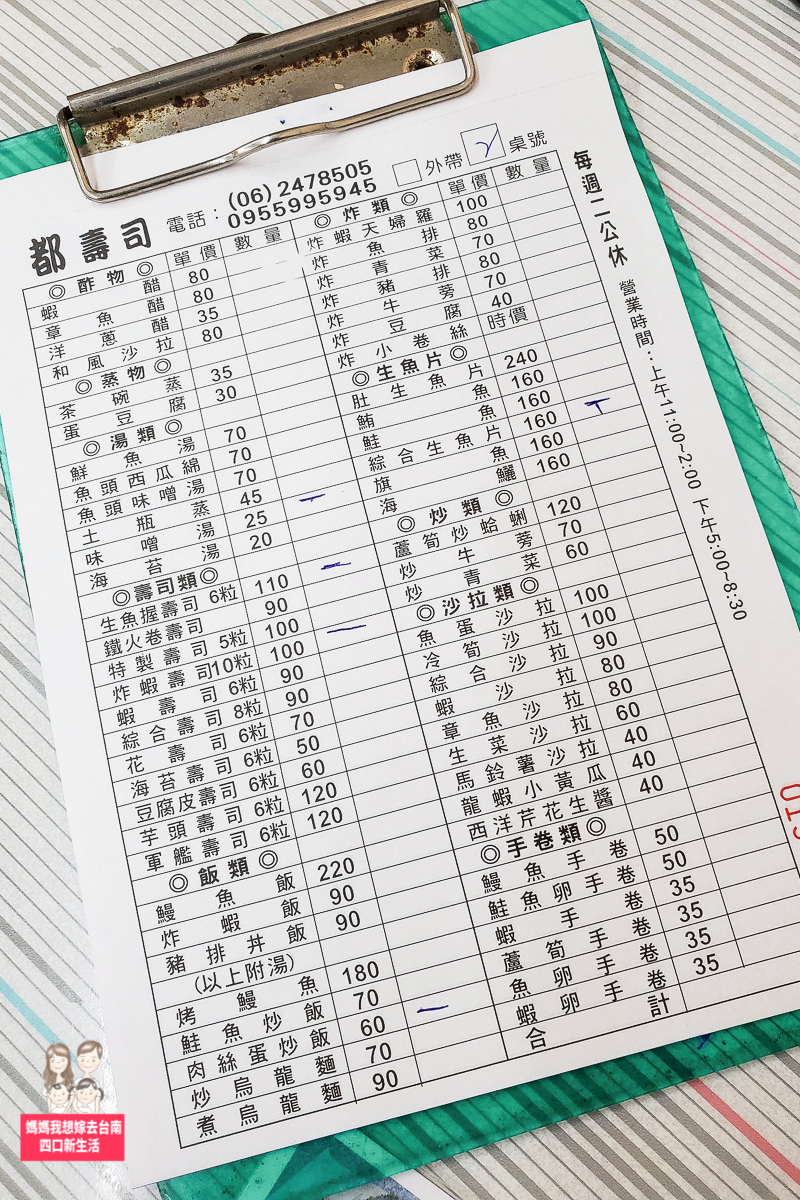 都壽司
電話：(06) 2478505
0955995945
外帶 桌號
單價 數量
◎酢物◎
蝦醋 80
章魚醋 80
洋蔥醋 35
和風沙拉 80
◎蒸物◎
茶碗蒸 35
蛋豆腐 30
◎湯類◎
鮮魚湯 70
魚頭西瓜綿 70
魚頭味噌湯 70
土瓶蒸 45
味噌湯 25
海苔湯 20
◎壽司類◎
生魚握壽司 6粒 110
鐵火卷壽司 90
特製壽司 5粒 100
炸蝦壽司10粒 100
蝦壽司 6粒 90
綜合壽司 8粒 90
花壽司 6粒 70
海苔壽司 6粒 50
豆腐皮壽司 6粒 60
芋頭壽司 6粒 120
軍艦壽司 6粒 120
◎飯類◎
鰻魚飯 220
炸蝦飯 90
豬排丼飯 90
(以上附湯)
烤鰻魚 180
鮭魚炒飯 70
肉絲蛋炒飯 60
炒烏龍麵 70
煮烏龍麵 90
◎炸類◎ 單價 數量
炸蝦天婦羅 100
炸魚排 80
炸青菜 70
炸豬排 80
炸牛蒡 70
炸豆腐 40
炸小卷絲 時價
◎生魚片◎
肚生魚片 240
鮪魚 160
鮭魚 160
綜合生魚片 160
旗魚 160
海鱺 160
◎炒類◎
蘆筍炒蛤蜊 120
炒牛蒡 70
炒青菜 60
◎沙拉類◎
魚蛋沙拉 100
冷筍沙拉 100
綜合沙拉 90
蝦沙拉 80
章魚沙拉 80
生菜沙拉 60
馬鈴薯沙拉 40
龍蝦小黃瓜 40
西洋芹花生醬 40
◎手卷類◎
鰻魚手卷 50
鮭魚卵手卷 50
蝦手卷 35
蘆筍手卷 35
魚卵手卷 35
蝦卵手卷 35
合計
每週二公休 營業時間：上午11:00~2:00 下午5:00~8:30
媽媽我想嫁去台南
四口新生活